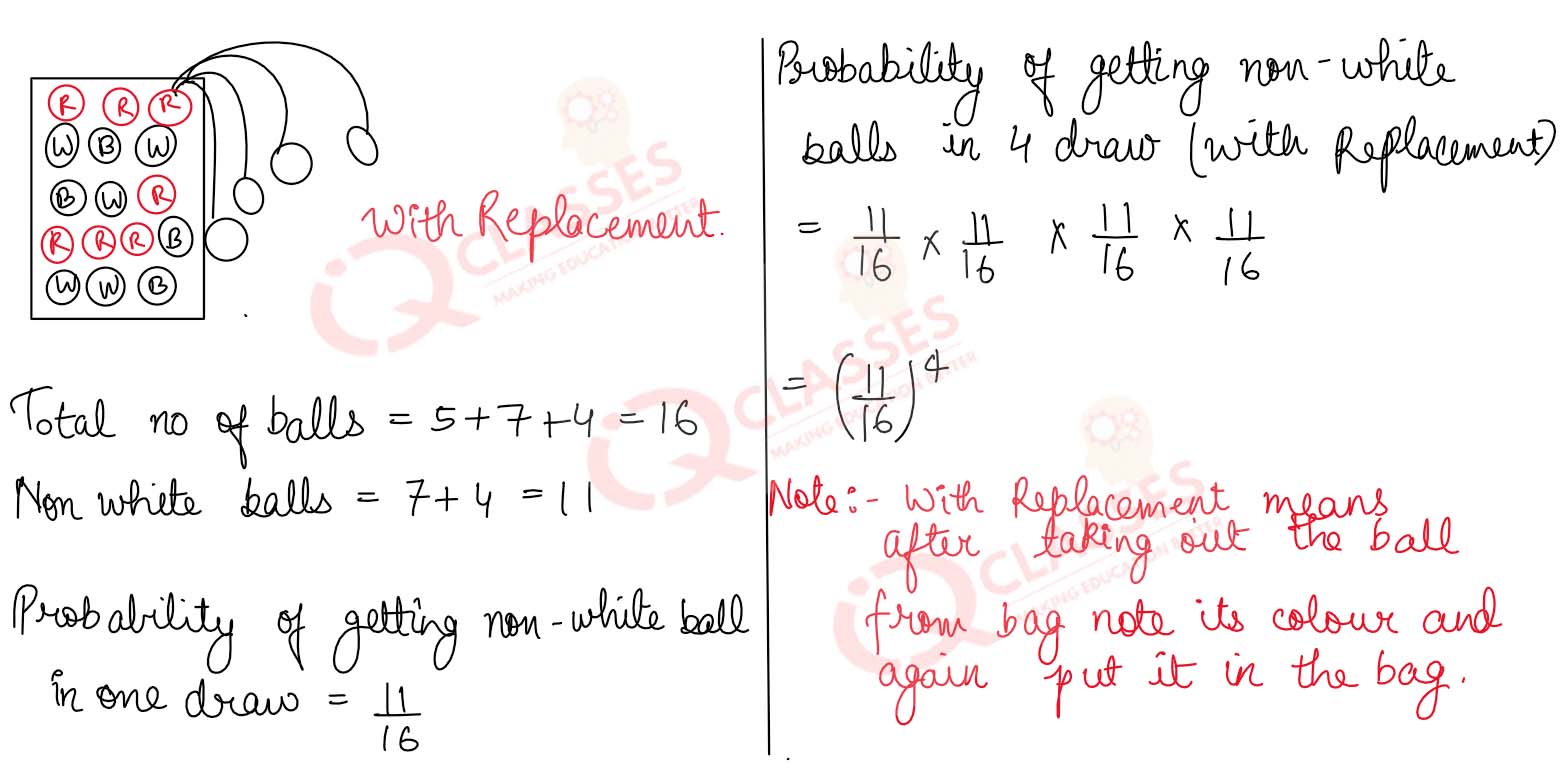 R R R
W B W
B W R
R R R B
W W B
With Replacement.
Total no of balls = 5+7+4 = 16
Non white balls = 7+4 = 11
Probability of getting non-white ball
in one draw = 11/16
Probability of getting non-white
balls in 4 draw (with Replacement)
= 11/16 × 11/16 × 11/16 × 11/16
= (11/16)^4
Note:- With Replacement means
after taking out the ball
from bag note its colour and
again put it in the bag.
IQ CLASSES
MAKING EDUCATION BETTER
IQ CLASSES
MAKING EDUCATION BETTER
IQ CLASSES
MAKING EDUCATION BETTER